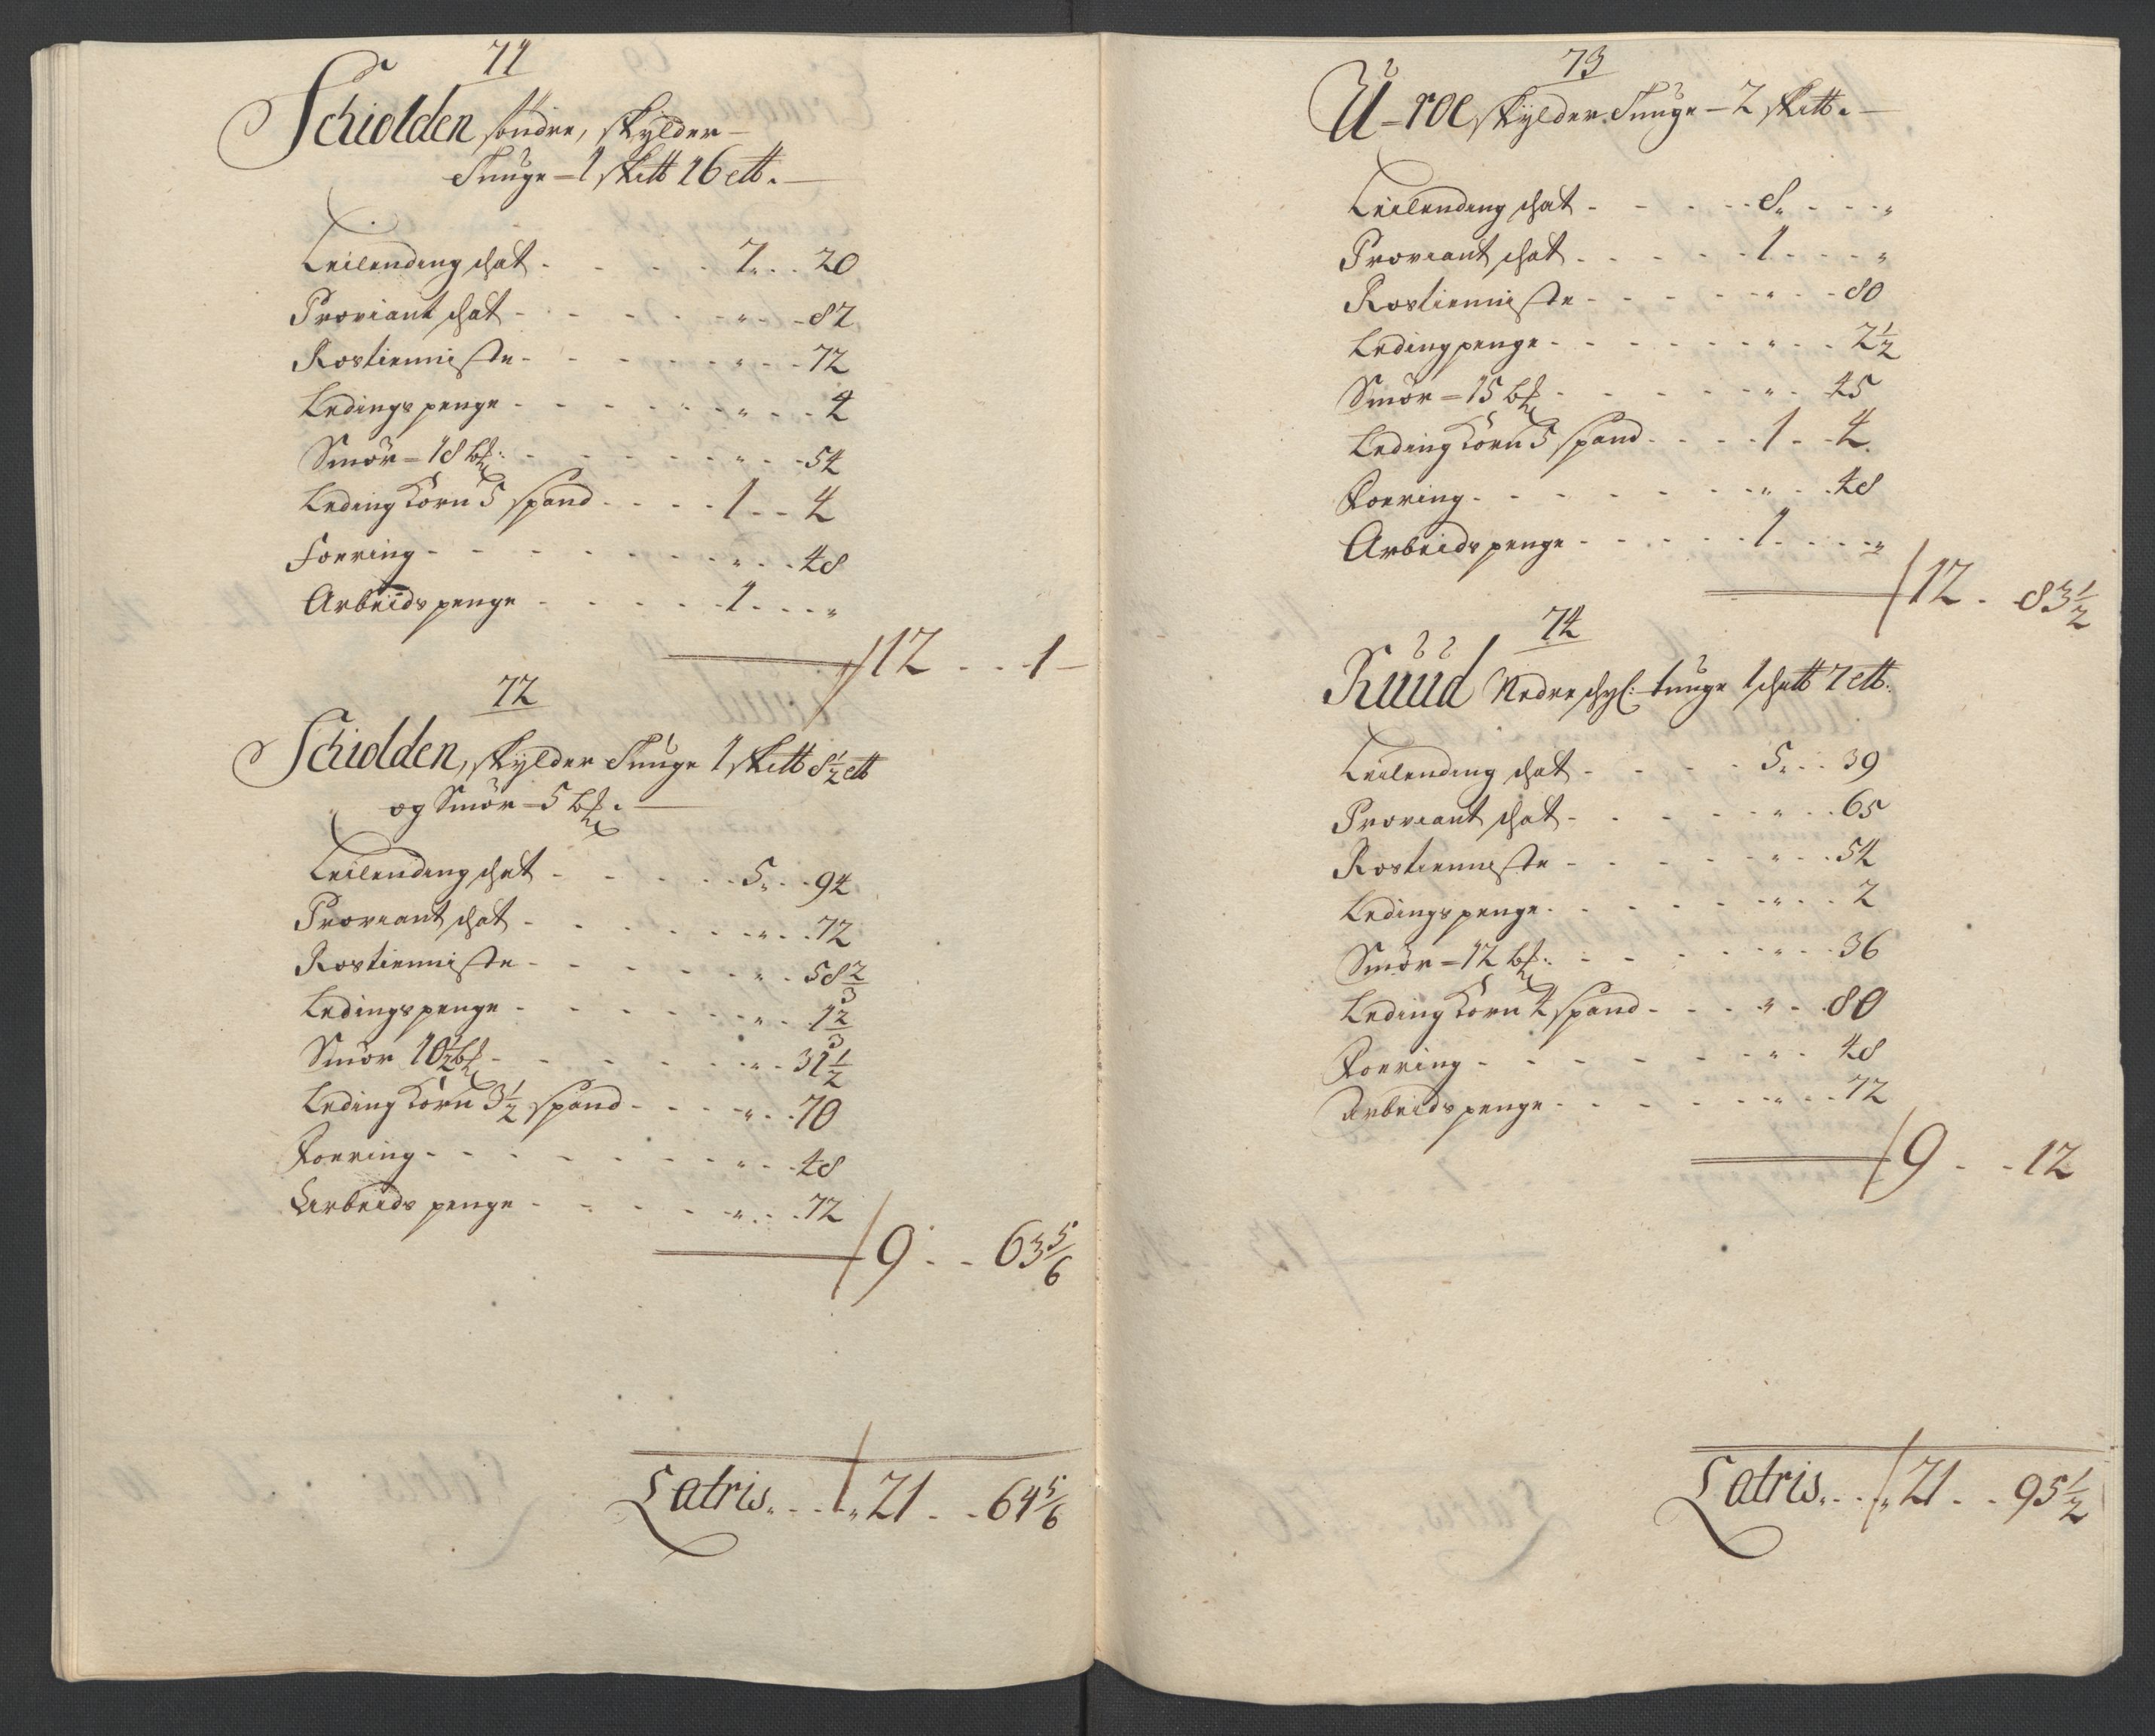 71
Schiolden söndre, skylder –
Tunge = 1 skttb 16 ettb. –
Leilending schat - - - - 7 „ - - 20
Proviant schat - - - - „ - - 82
Rostienniste - - - - „ - - 72
Ledings penge - - - - „ - - 4
Smör = 18 bf: - - - - „ - - 54
Leding Korn 5 spand - - - - 1 - - 4
Foering - - - - „ - - 48
Arbeids penge - - - - 1 - - „
12 - - 1 –
72
Schiolden, skylder Tunge 1 skttb 8½ ettb
og Smör = 5 bf. –
Leilending schat - - - - 5 „ - - 94
Proviant schat - - - - „ - - 72
Rostienniste - - - - „ - - 58 2/3
Ledings penge - - - - „ - - 1 2/3
Smör 10½ bf - - - - „ - - 31½
Leding Korn 3½ spand - - - - „ - - 70
Foering - - - - „ - - 48
Arbeids penge - - - - „ - - 72
9 - - 63 5/6
Latris - - - „ 21 - - 64 5/6
73
U-roe skylder Tunge – 2 skttb. –
Leilending schat - - - - 8 „ - - „
Proviant schat - - - - 1 - - „
Rostienniste - - - - „ - - 80
Leding penge - - - - „ - - 2½
Smör = 15 bf - - - - „ - - 45
Leding Korn 5 spand - - - - 1 - - 4.
Foering - - - - „ - - 48
Arbeids penge - - - - 1 - - „
12 - 83½
74
Ruud Nedre schyl: tunge 1 schttb 7 ettb.
Leilending schat - - - - 5 „ - - 39
Proviant schat - - - - „ - - 65
Rostienniste - - - - „ - - 54
Ledings penge - - - - „ - - 2
Smör = 12 bf: - - - - „ - - 36
Leding Korn 4 spand - - - - „ - - 80
Foering - - - - „ - - 48
Arbeids penge - - - - „ - - 72
9 - - 12
Latris - - - „ 21 - - 95½